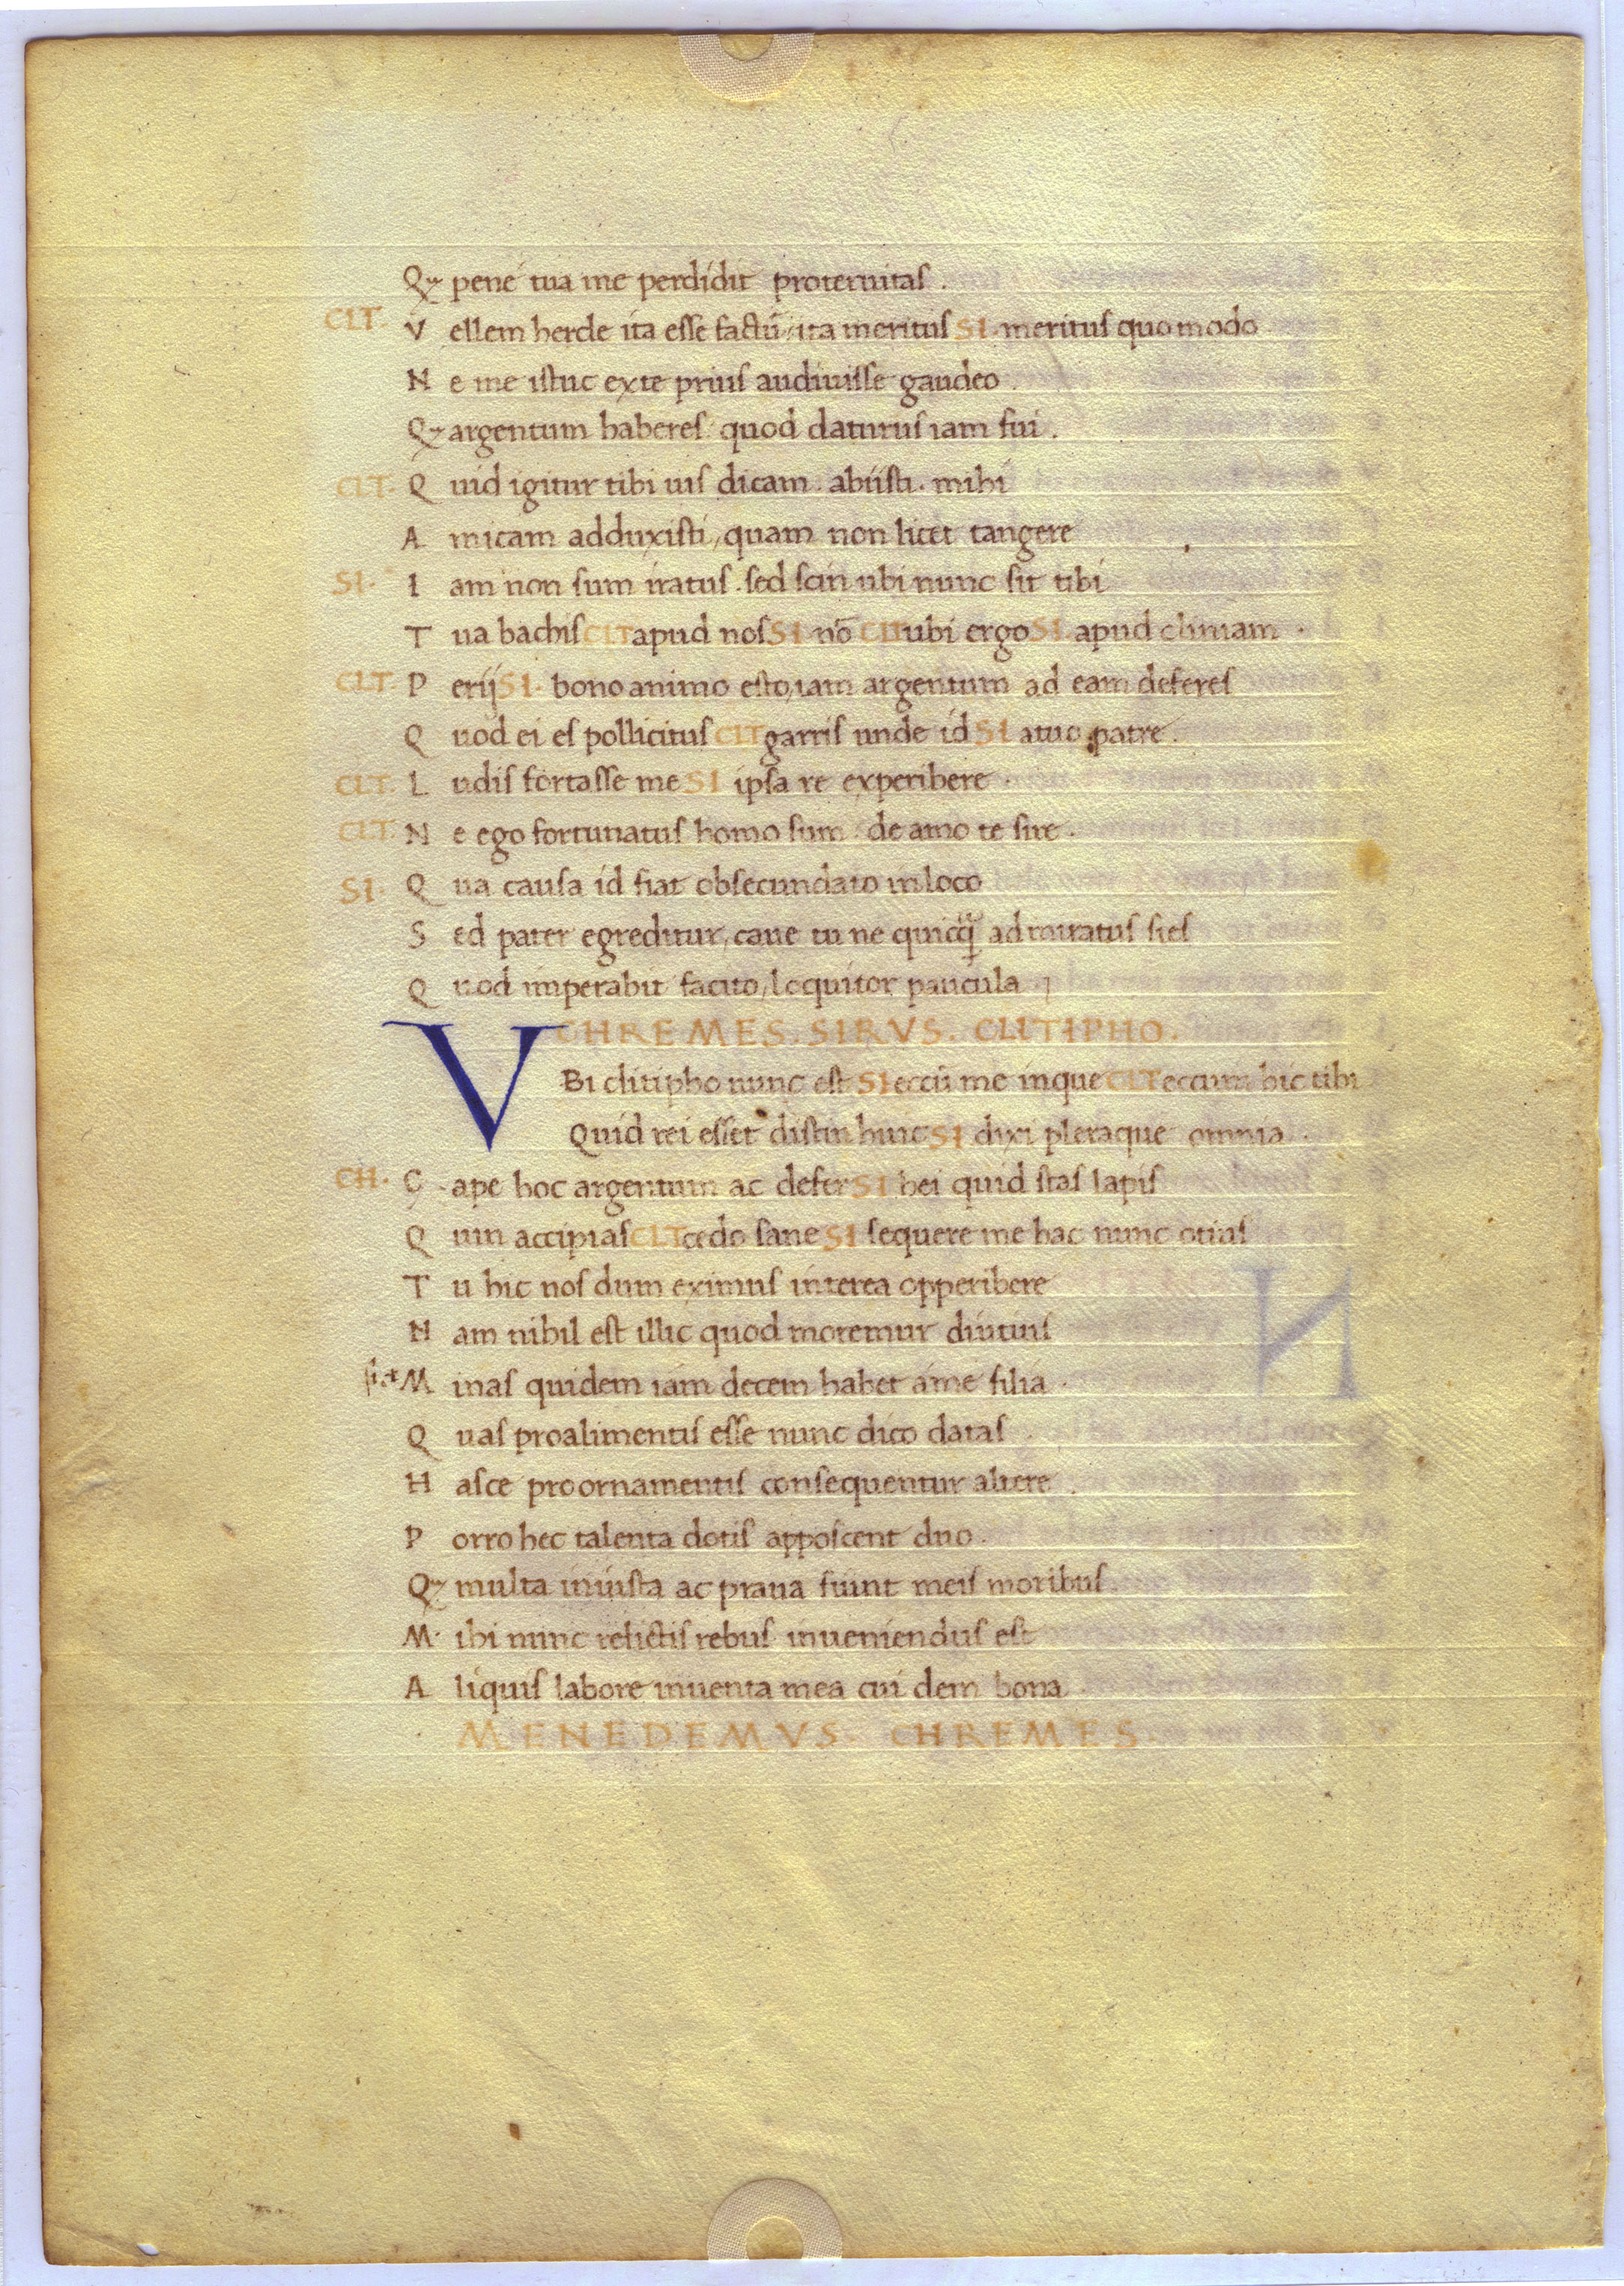 Qm̃ pene tua me perdidit proteruitas.
CLT. V ellem hercle ita esse factũ, ita meritus SI. meritus quo modo
N e me istuc ex te prius audiuisse gaudeo.
Qm̃ argentum haberes quod daturus iam fui.
CLT. Q uid igitur tibi uis dicam. abiisti. mihi
A micam adduxisti, quam non licet tangere
SI. I am non sum iratus. sed scin ubi nunc sit tibi
T ua bachis CLT apud nos SI. nõ CLT ubi ergo SI. apud cliniam.
CLT. P erij SI. bono animo esto, iam argentum ad eam deferes
Q uod ei es pollicitus CLT garris unde id SI a tuo patre.
CLT. L udis fortasse me SI ipsa re experibere.
CLT. N e ego fortunatus homo sum. de amo te sire.
SI. Q ua causa id fiat obsecundato in loco
S ed pater egreditur, caue tu ne quicq̃ admiratus sies
Q uod imperabit facito, loquitor paucula
CHREMES. SIRVS. CLITIPHO.
V BI clitipho nunc est SI eccũ me inque CLT eccum hic tibi
Quid rei esset dixtin huic SI dixi pleraque omnia.
CH. C ape hoc argentum ac defer SI hei quid stas lapis
Q uin accipias CLT cedo sane SI sequere me hac nunc otius
T u hic nos dum eximus interea opperibere
N am nihil est illic quod moremur diutius
M inas quidem iam decem habet a me filia.
Q uas pro alimentis esse nunc dico datas
H asce pro ornamentis consequentur altere.
P orro hec talenta dotis apposcent duo.
Qm̃ multa iniusta ac praua fiunt meis moribus
M. ihi nunc relictis rebus inueniendus est
A liquis labore inuenta mea cui dem bona
MENEDEMVS. CHREMES.